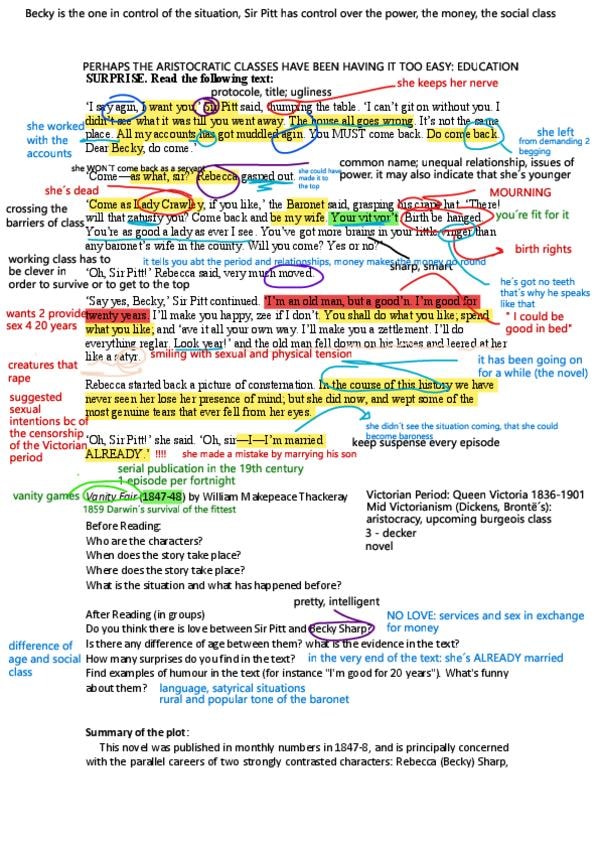 Becky is the one in control of the situation, Sir Pitt has control over the power, the money, the social class
PERHAPS THE ARISTOCRATIC CLASSES HAVE BEEN HAVING IT TOO EASY: EDUCATION
SURPRISE. Read the following text:
protocole, title; ugliness
she keeps her nerve
'I say agin, I want you,' Sir Pitt said, thumping the table. 'I can't git on without you. I
didn't see what it was till you went away. The house all goes wrong. It's not the same
place. All my accounts has got muddled agin. You MUST come back. Do come back.
Dear Becky, do come.'
she worked
with the
accounts
she left
from demanding 2
begging
she WON'T come back as a servant
'Come—as what, sir?' Rebecca gasped out.
she could have
made it to
the top
common name; unequal relationship, issues of
power. it may also indicate that she's younger
she´s dead
MOURNING
'Come as Lady Crawley, if you like,' the Baronet said, grasping his crape hat. 'There!
will that zatusfy you? Come back and be my wife. Your vit vor't. Birth be hanged.
You're as good a lady as ever I see. You've got more brains in your little vinger than
any baronet's wife in the county. Will you come? Yes or no?'
crossing the
barriers of class
you're fit for it
birth rights
working class has to
be clever in
order to survive or to get to the top
it tells you abt the period and relationships, money makes the money go round
sharp, smart
'Oh, Sir Pitt!' Rebecca said, very much moved.
he´s got no teeth
that´s why he speaks
like that
'Say yes, Becky,' Sir Pitt continued. 'I'm an old man, but a good'n. I'm good for
twenty years. I'll make you happy, zee if I don't. You shall do what you like; spend
what you like; and 'ave it all your own way. I'll make you a zettlement. I'll do
everything reglar. Look year!' and the old man fell down on his knees and leered at her
like a satyr.
wants 2 provide
sex 4 20 years
" I could be
good in bed"
smiling with sexual and physical tension
creatures that
rape
it has been going on
for a while (the novel)
Rebecca started back a picture of consternation. In the course of this history we have
never seen her lose her presence of mind; but she did now, and wept some of the
most genuine tears that ever fell from her eyes.
suggested
sexual
intentions bc of
the censorship
of the Victorian
period
she didn´t see the situation coming, that she could
become baroness
'Oh, Sir Pitt!' she said. 'Oh, sir—I—I'm married
ALREADY.' !!!! she made a mistake by marrying his son
keep suspense every episode
serial publication in the 19th century
1 episode per fortnight
vanity games
Vanity Fair (1847-48) by William Makepeace Thackeray
1859 Darwin´s survival of the fittest
Victorian Period: Queen Victoria 1836-1901
Mid Victorianism (Dickens, Brontë´s):
aristocracy, upcoming burgeois class
3 - decker
novel
Before Reading:
Who are the characters?
When does the story take place?
Where does the story take place?
What is the situation and what has happened before?
pretty, intelligent
After Reading (in groups)
Do you think there is love between Sir Pitt and Becky Sharp?
NO LOVE: services and sex in exchange
for money
Is there any difference of age between them? what is the evidence in the text?
difference of
age and social
class
How many surprises do you find in the text? in the very end of the text: she´s ALREADY married
Find examples of humour in the text (for instance "I'm good for 20 years"). What's funny
about them? language, satyrical situations
rural and popular tone of the baronet
Summary of the plot:
This novel was published in monthly numbers in 1847-8, and is principally concerned
with the parallel careers of two strongly contrasted characters: Rebecca (Becky) Sharp,